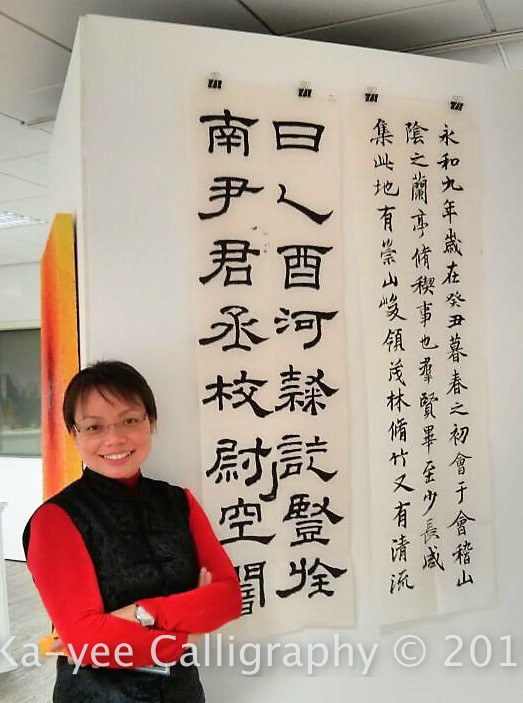 永和九年歲在癸丑暮春之初會于會稽山
陰之蘭亭脩稧事也羣賢畢至少長咸
集此地有崇山峻領茂林脩竹又有清流
日乙酉河
南尹君丞校尉空闇
Ka-yee Calligraphy © 201